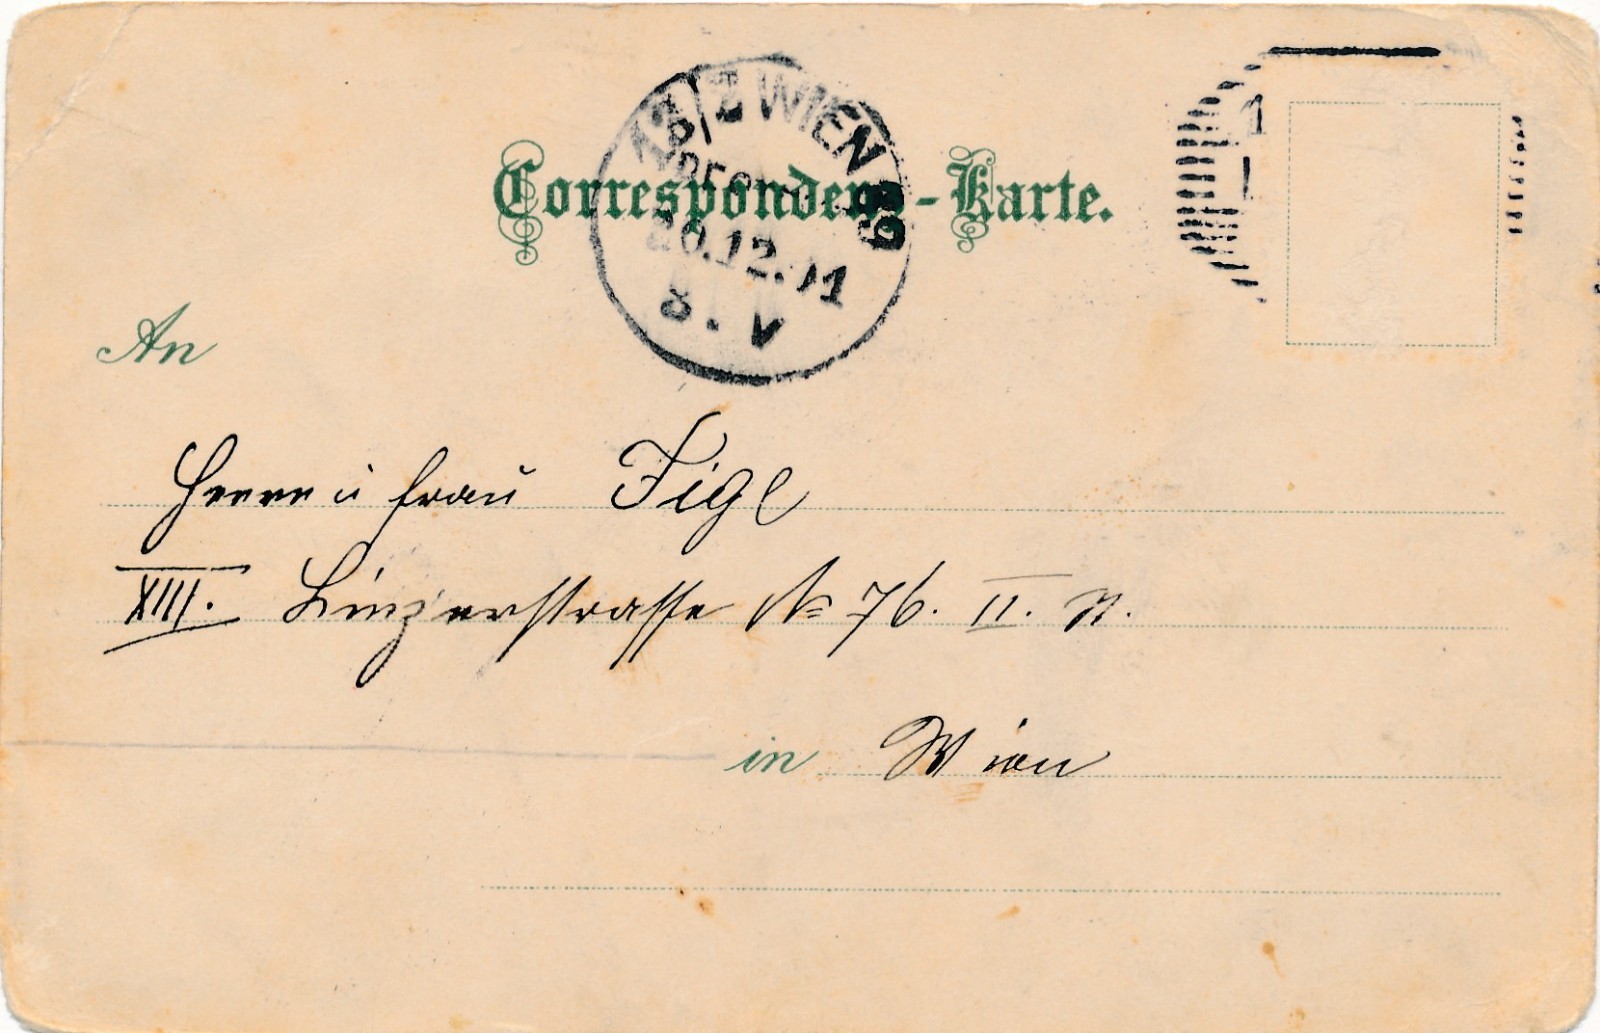 13/Z WIEN 89
20.12.01
8. V
Correspondenz-Karte.
1
An
Herrn u Frau Figl
XIII. Linzerstrasse № 76. II. N.
in Wien